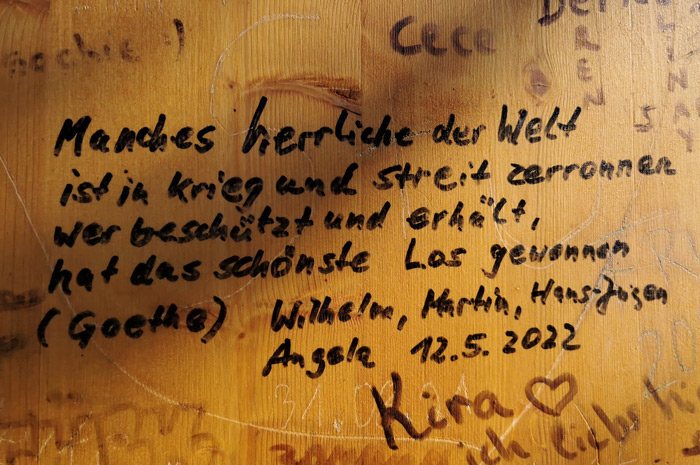 Cece
Manches herrliche der Welt
ist in Krieg und Streit zerronnen
wer beschützt und erhält,
hat das schönste Los gewonnen
(Goethe) Wilhelm, Martin, Hans-Jügen
Angela 12.5.2022
Kira ♡
ich liebe